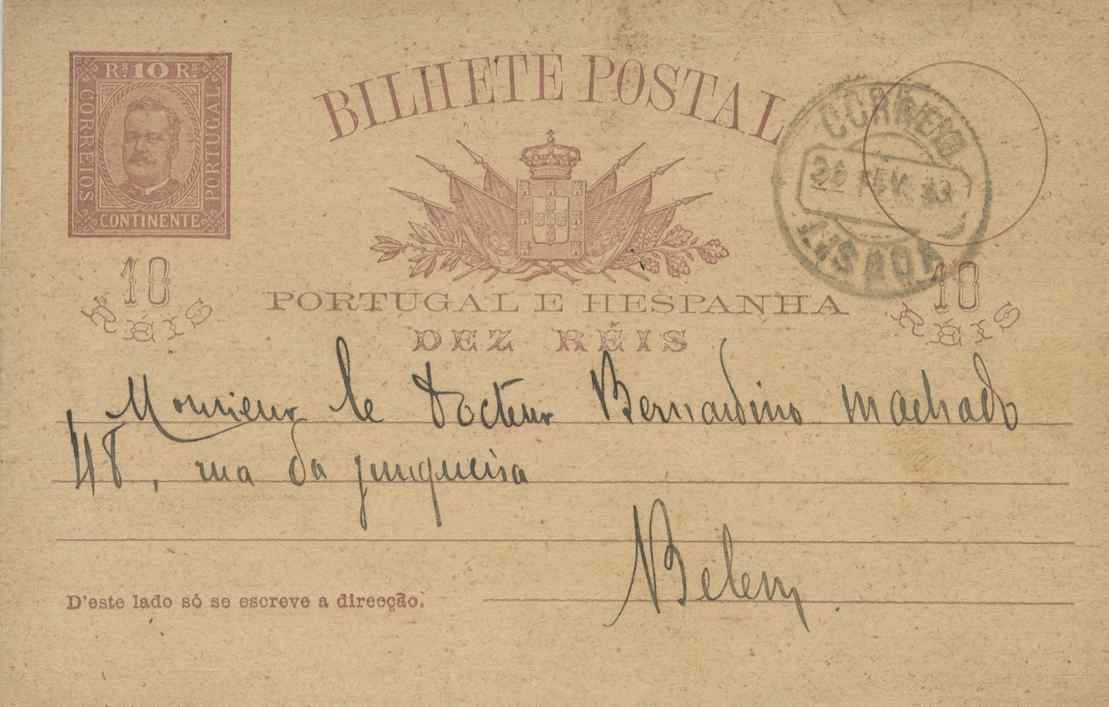 Rˢ 10 Rˢ
CORREIOS
PORTUGAL
CONTINENTE
BILHETE POSTAL
CORREIO
LISBOA
10
RÉIS
10
RÉIS
PORTUGAL E HESPANHA
DEZ RÉIS
Monsieur le Docteur Bernardino Machado
48, rua da junqueira
Belem
D'este lado só se escreve a direcção.